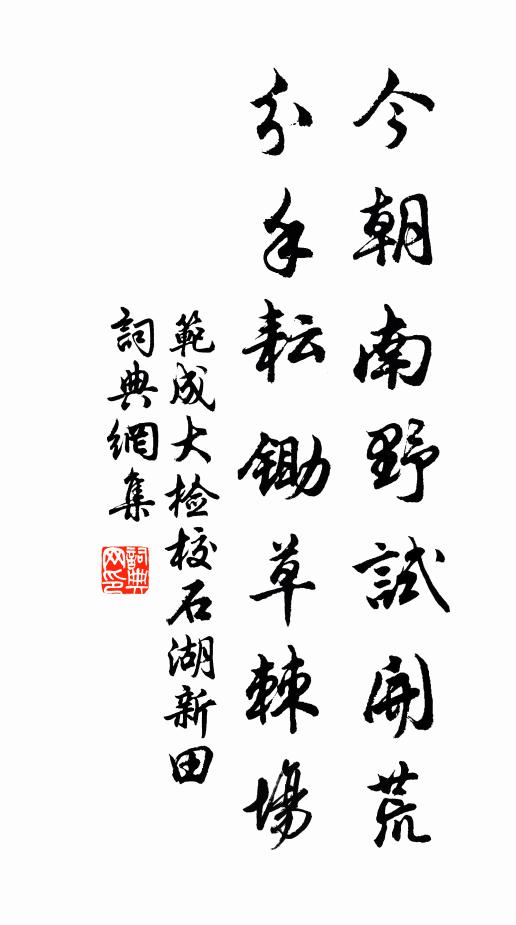 今朝南野試開荒
分手耘鋤草棘場
範成大檢校石湖新田
詞典網集
詞典网印